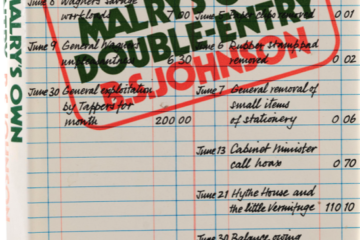 MALRY'S OWN
B.S. JOHNSON
MALRY'S
DOUBLE-ENTRY
B.S. JOHNSON
June 8 Wagner's savage
workloads 7 00
June 9 General Wagner
unpleasantness 6 30
June 30 General exploitation
by Tappers for
month 200 00
removed 0 01
June 6 Rubber stamp pad
removed 0 02
June 7 General removal of
small items
of stationery 0 06
June 13 Cabinet Minister
call hoax 0 70
June 21 Hythe House and
the little Vermifuge 110 10
June 30 Balance owing